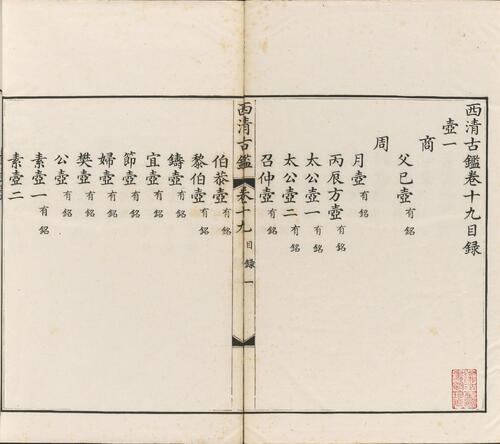 西清古鑑卷十九目録
壺一
商
父己壺有銘
周
月壺有銘
丙辰方壺有銘
太公壺一有銘
太公壺二有銘
召仲壺有銘
西清古鑑 卷十九目録 一
伯㳟壺有銘
黎伯壺有銘
鑄壺有銘
宜壺有銘
節壺有銘
婦壺有銘
樊壺有銘
公壺有銘
素壺一有銘
素壺二